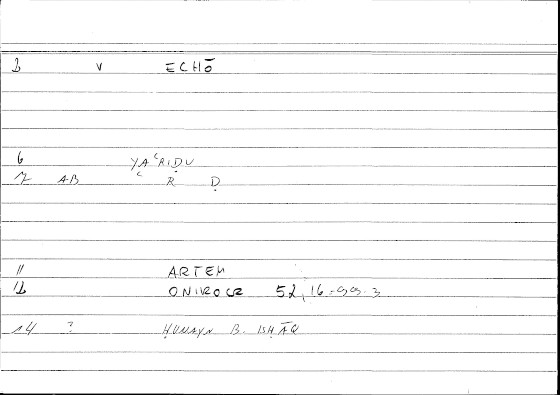 3 V ECHŌ
6 YAʿRIḌU
7 AB ʿ R Ḍ
11 ARTEM
12 ONIROCR 52, 16
14 ? ḤUNAYN B. ISḤĀQ